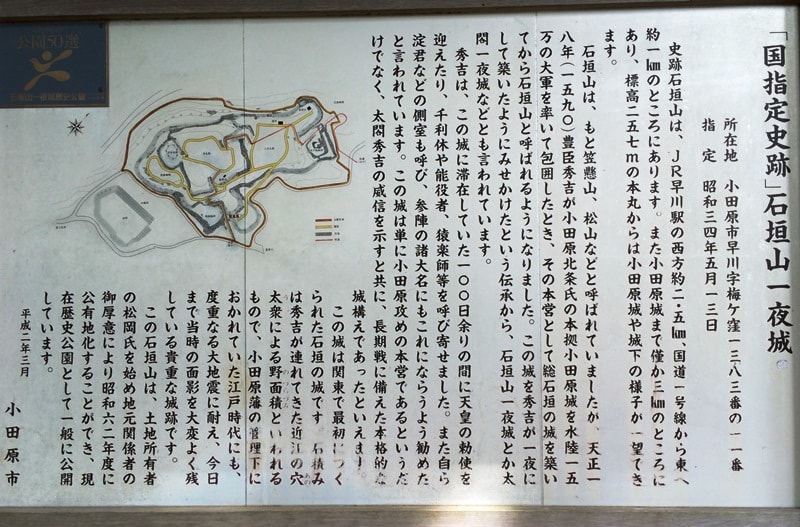 「国指定史跡」石垣山一夜城
所在地 小田原市早川字梅ケ窪一三八三番の一一番
指定 昭和三四年五月一三日
史跡石垣山は、JR早川駅の西方約二・五㎞、国道一号線から東へ
約一㎞のところにあります。また小田原城まで僅か三㎞のところに
あり、標高二五七mの本丸からは小田原城や城下の様子が一望でき
ます。
石垣山は、もと笠懸山、松山などと呼ばれていましたが、天正一
八年(一五九〇)豊臣秀吉が小田原北条氏の本拠小田原城を水陸一五
万の大軍を率いて包囲したとき、その本営として総石垣の城を築い
てから石垣山と呼ばれるようになりました。この城を秀吉が一夜に
して築いたようにみせかけたという伝承から、石垣山一夜城とか太
閤一夜城などとも言われています。
秀吉は、この城に滞在していた一〇〇日余りの間に天皇の勅使を
迎えたり、千利休や能役者、猿楽師等を呼び寄せました。また自ら
淀君などの側室も呼び、参陣の諸大名にもこれにならうよう勧めた
と言われています。この城は単に小田原攻めの本営であるというだ
けでなく、太閤秀吉の威信を示すと共に、長期戦に備えた本格的な
城構えであったといえます
この城は関東で最初につく
られた石垣の城です 石積み
は秀吉が連れてきた近江の穴
太衆による野面積といわれる
もので、小田原藩の管理下に
おかれていた江戸時代にも、
度重なる大地震に耐え、今日
まで当時の面影を大変よく残
している貴重な城跡です。
この石垣山は、土地所有者
の松岡氏を始め地元関係者の
御厚意により昭和六二年度に
公有地化することができ、現
在歴史公園として一般に公開
しています。
平成二年三月
小田原市
公園50選
石垣山一夜城歴史公園